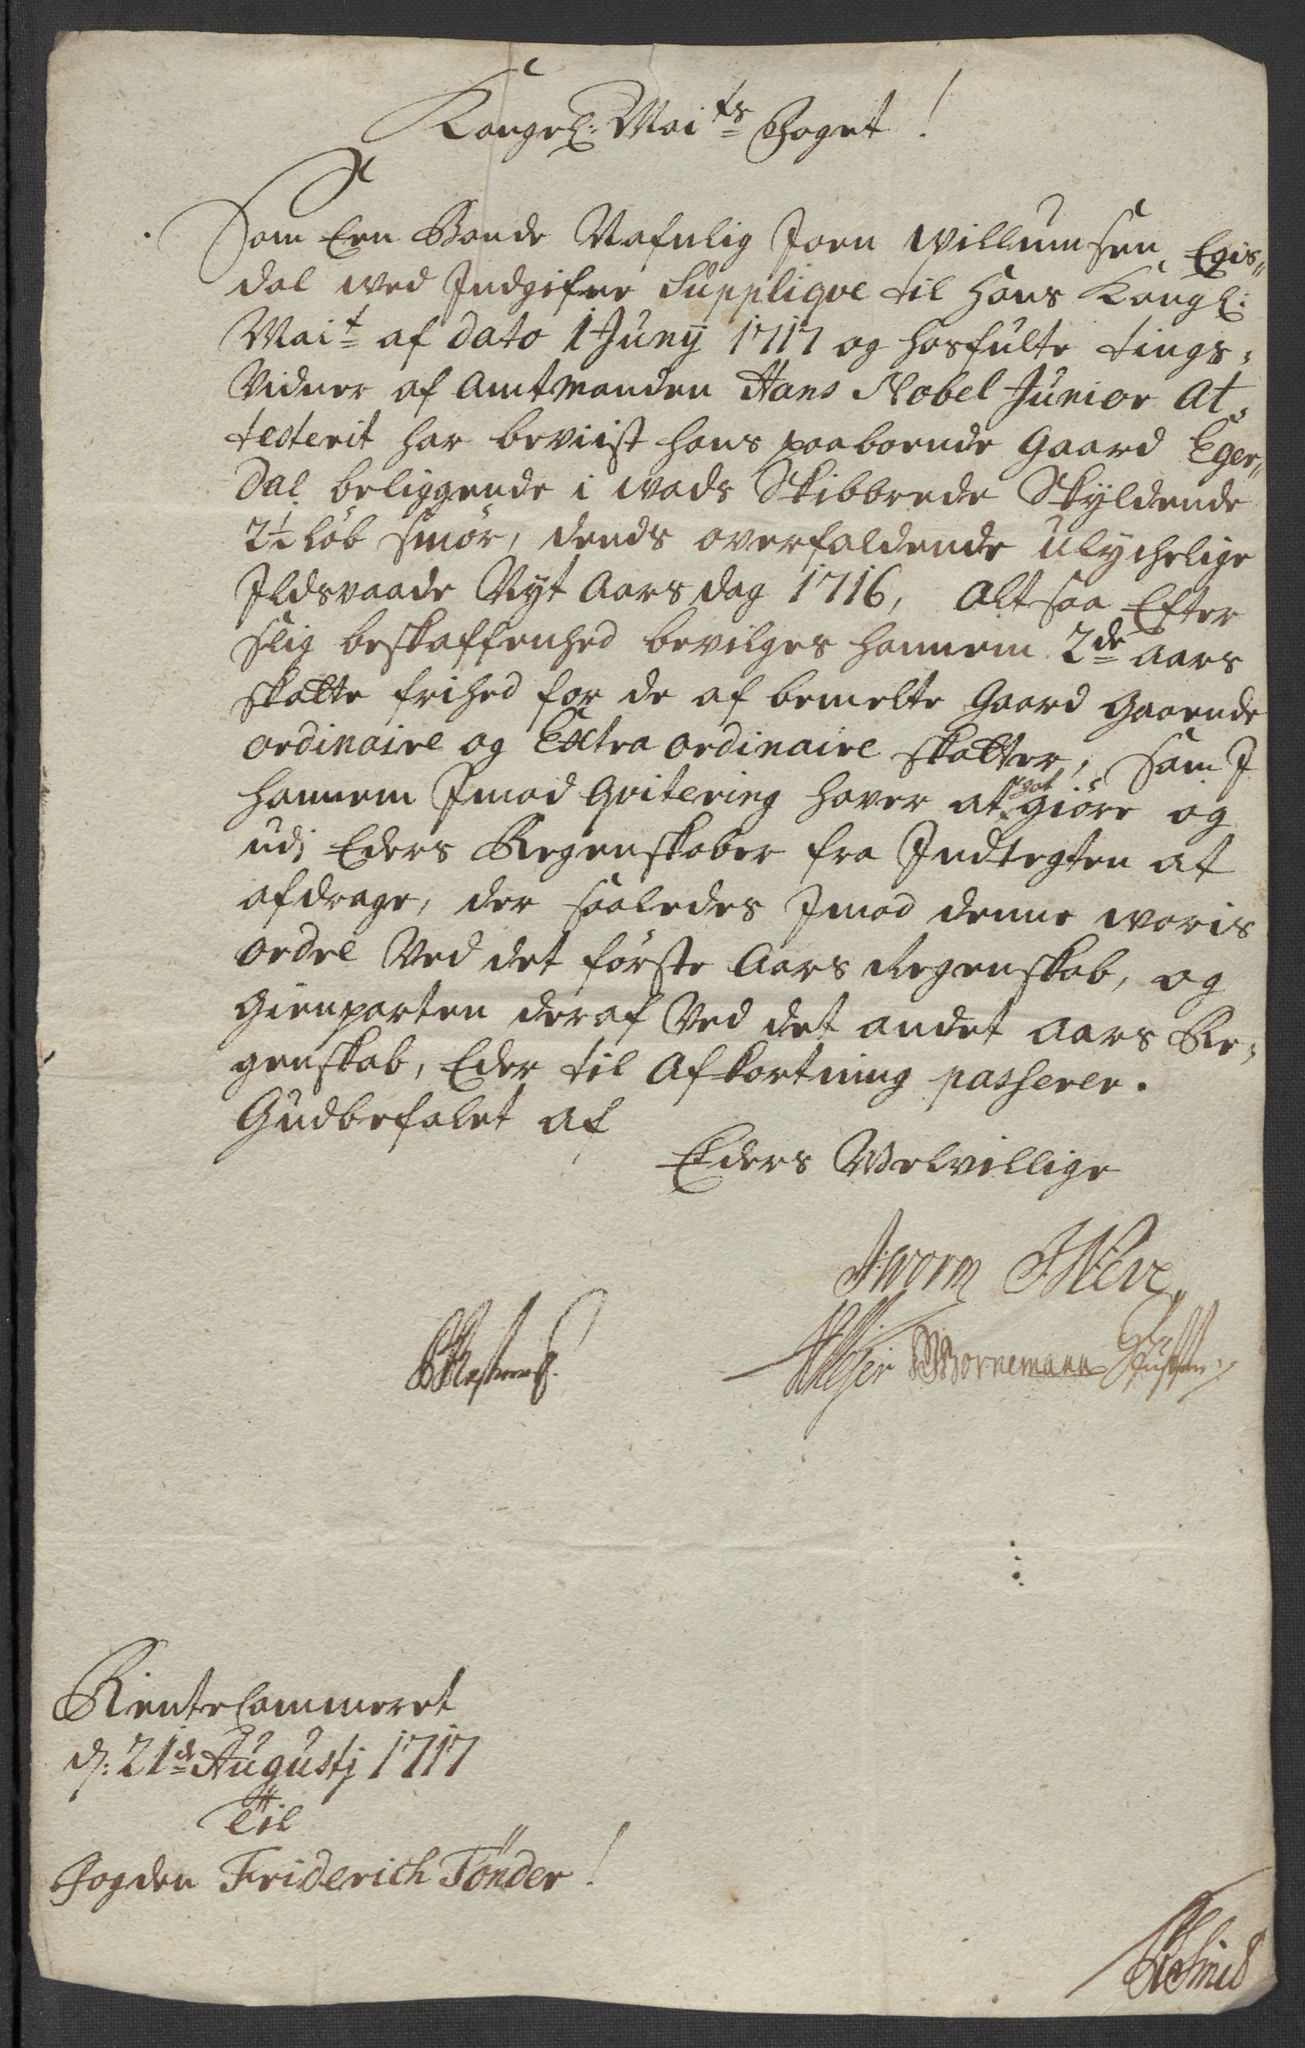 Kongel: Mai<sup>ts</sup> Foget!
Som Een Bonde Nafnlig Joen Willumsen Egis„
dal wed Indgifne Supplique til Hans Kongl:
Mai<sup>t</sup> af dato 1 Junij 1717 og hosfulte tings-
Vidner af Amtmanden Hans Nobel Junior At-
testerit har beviist hans paaboende Gaard Eger„
dal beliggende i Wads Skibbrede Skyldende
2½ løb smør, dends overfaldende Ulychelige
Ildsvaade Nyt Aars dag 1716, Alt saa Efter
slig beskaffenhed bevilges hannem 2<sup>de</sup> Aars
skatte frihed for de af bemelte Gaard Gaaende
Ordinaire og Extra ordinaire skatter, som I
hannem Imod Qvitering haver at got giøre og
udj Eders Regenskaber fra Indtegten at
afdrage, der saaledes Imod denne woris
Ordre Ved det første Aars Regenskab, og
Gienparten deraf Ved det andet Aars Re-
genskab, Eder til Afkortning passerer.
Gudbefalet af
Eders Velvillige
JWorm
Bornemann
RenteCammeret
d: 21<sup>de</sup> Augustj 1717
Til
Fogden Friderich Tønder!